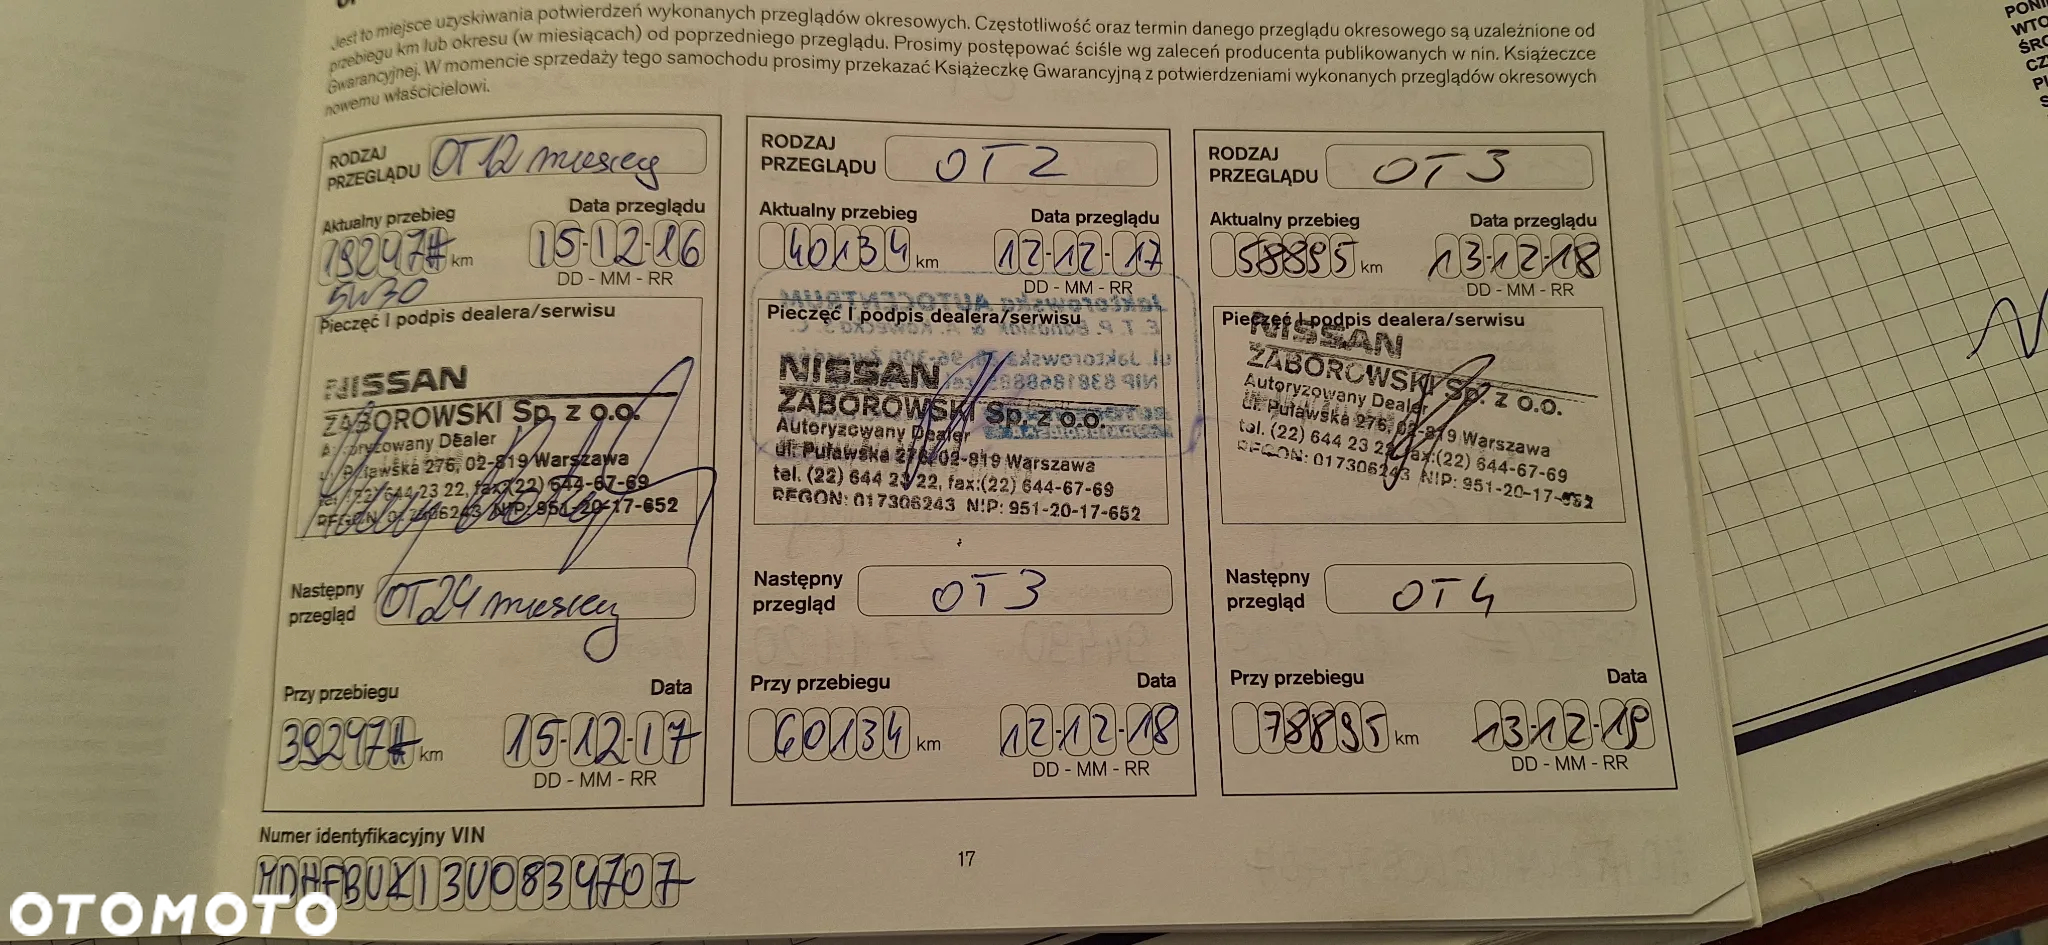 Jest to miejsce uzyskiwania potwierdzeń wykonanych przeglądów okresowych. Częstotliwość oraz termin danego przeglądu okresowego są uzależnione od
przebiegu km lub okresu (w miesiącach) od poprzedniego przeglądu. Prosimy postępować ściśle wg zaleceń producenta publikowanych w nin. Książeczce
Gwarancyjnej. W momencie sprzedaży tego samochodu prosimy przekazać Książeczkę Gwarancyjną z potwierdzeniami wykonanych przeglądów okresowych
nowemu właścicielowi.
RODZAJ
PRZEGLĄDU OT12 miesięcy
Aktualny przebieg Data przeglądu
19247# km 15-12-16
DD - MM - RR
5W30
Pieczęć I podpis dealera/serwisu
NISSAN
ZABOROWSKI Sp. z o.o.
Autoryzowany Dealer
ul. Puławska 276, 02-819 Warszawa
tel. (22) 644 23 22, fax:(22) 644-67-69
REGON: 017306243 NIP: 951-20-17-652
Następny
przegląd OT24 miesięcy
Przy przebiegu Data
39247# km 15-12-17
DD - MM - RR
RODZAJ
PRZEGLĄDU OT2
Aktualny przebieg Data przeglądu
40134 km 12-12-17
DD - MM - RR
Pieczęć I podpis dealera/serwisu
NISSAN
ZABOROWSKI Sp. z o.o.
Autoryzowany Dealer
ul. Puławska 276, 02-819 Warszawa
tel. (22) 644 23 22, fax:(22) 644-67-69
REGON: 017306243 NIP: 951-20-17-652
Następny
przegląd OT3
Przy przebiegu Data
60134 km 12-12-18
DD - MM - RR
RODZAJ
PRZEGLĄDU OT3
Aktualny przebieg Data przeglądu
58895 km 13-12-18
DD - MM - RR
Pieczęć I podpis dealera/serwisu
NISSAN
ZABOROWSKI Sp. z o.o.
Autoryzowany Dealer
ul. Puławska 276, 02-819 Warszawa
tel. (22) 644 23 22, fax:(22) 644-67-69
REGON: 017306243 NIP: 951-20-17-652
Następny
przegląd OT4
Przy przebiegu Data
78895 km 13-12-19
DD - MM - RR
Numer identyfikacyjny VIN
MDHFBUK13U0834707
17
OTOMOTO